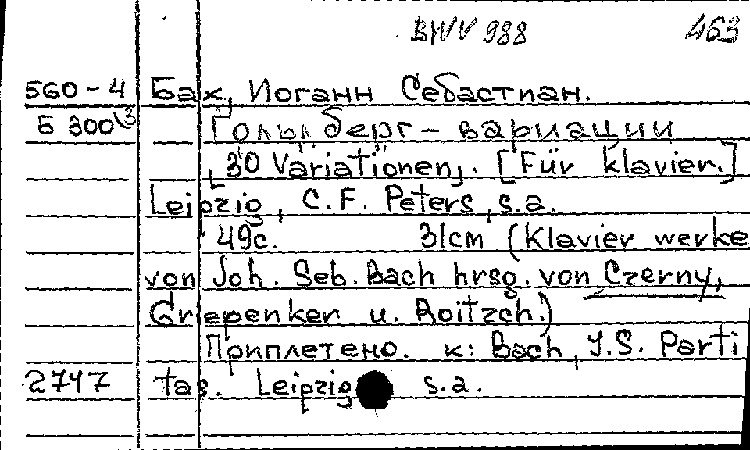 BWV 988 463
560-4 Бах, Иоганн Себастиан.
Б 300\3 Гольдберг-вариации
"30 Variationen". [Für klavier.]
Leipzig, C.F. Peters, s.a.
49с. 31cm (Klavier werke
von Joh. Seb. Bach hrsg. von Czerny,
Griepenken u. Roitzch.)
Приплетено. к: Bach, J.S. Parti
2747 tas. Leipzig s.a.